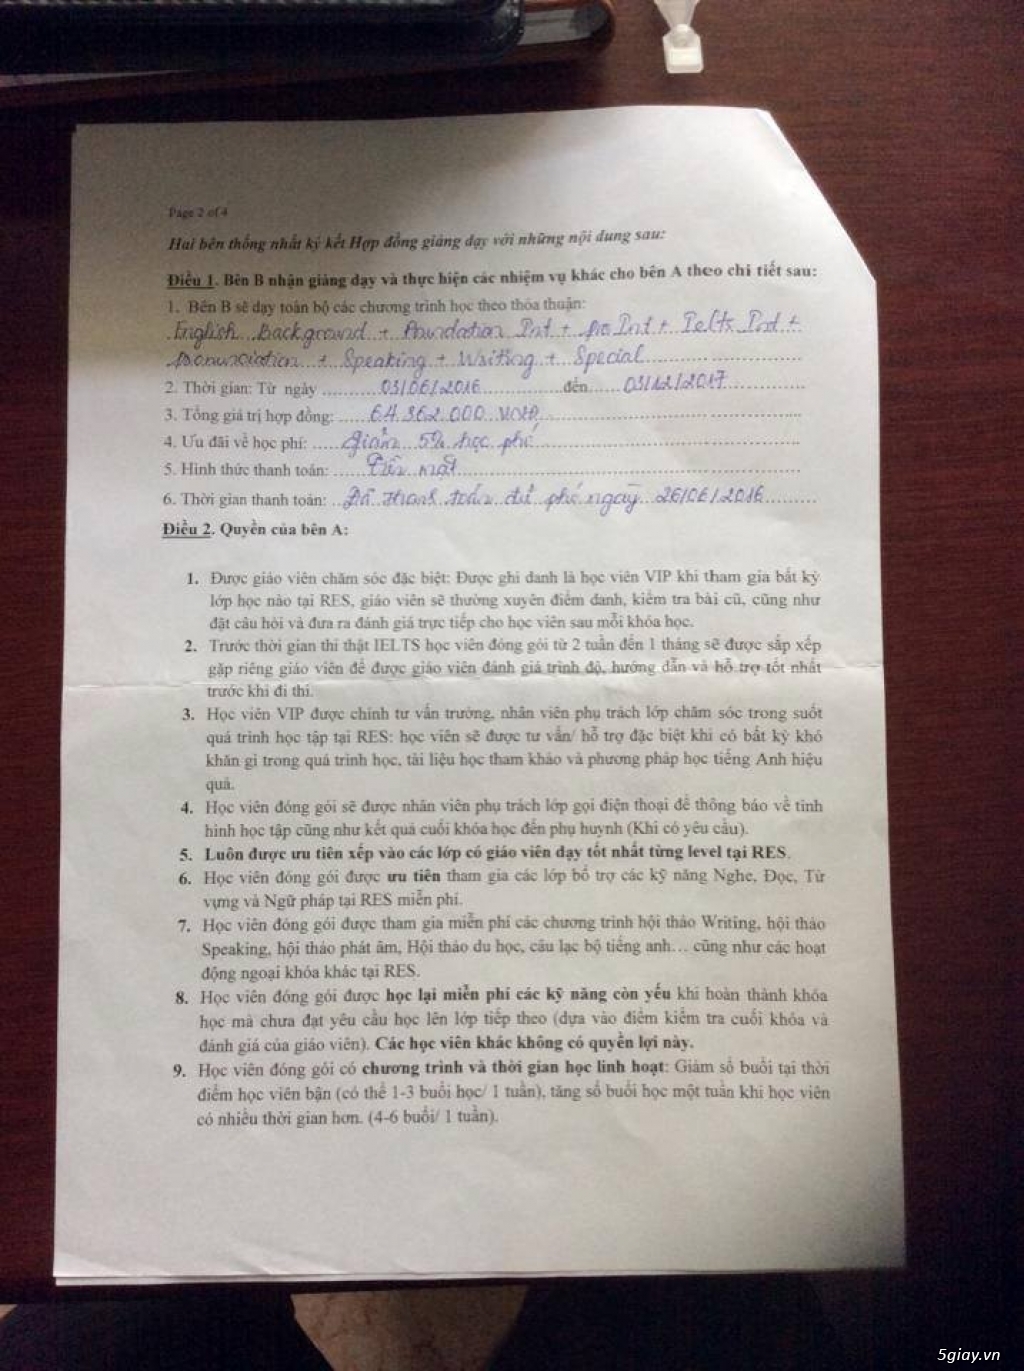 Page 2 of 4
Hai bên thống nhất ký kết Hợp đồng giảng dạy với những nội dung sau:
Điều 1. Bên B nhận giảng dạy và thực hiện các nhiệm vụ khác cho bên A theo chi tiết sau:
1. Bên B sẽ dạy toàn bộ các chương trình học theo thỏa thuận:
English Background + Foundation Int + pre Int + Ielts Int +
pronunciation + Speaking + Writing + Special
2. Thời gian: Từ ngày 03/06/2016 đến 03/12/2017
3. Tổng giá trị hợp đồng: 64.362.000 VNĐ
4. Ưu đãi về học phí: Giảm 5% học phí
5. Hình thức thanh toán: Tiền mặt
6. Thời gian thanh toán: Đã thanh toán đủ phí ngày 26/06/2016
Điều 2. Quyền của bên A:
1. Được giáo viên chăm sóc đặc biệt: Được ghi danh là học viên VIP khi tham gia bất kỳ
lớp học nào tại RES, giáo viên sẽ thường xuyên điểm danh, kiểm tra bài cũ, cũng như
đặt câu hỏi và đưa ra đánh giá trực tiếp cho học viên sau mỗi khóa học.
2. Trước thời gian thi thật IELTS học viên đóng gói từ 2 tuần đến 1 tháng sẽ được sắp xếp
gặp riêng giáo viên để được giáo viên đánh giá trình độ, hướng dẫn và hỗ trợ tốt nhất
trước khi đi thi.
3. Học viên VIP được chính tư vấn trưởng, nhân viên phụ trách lớp chăm sóc trong suốt
quá trình học tập tại RES: học viên sẽ được tư vấn/ hỗ trợ đặc biệt khi có bất kỳ khó
khăn gì trong quá trình học, tài liệu học tham khảo và phương pháp học tiếng Anh hiệu
quả.
4. Học viên đóng gói sẽ được nhân viên phụ trách lớp gọi điện thoại để thông báo về tình
hình học tập cũng như kết quả cuối khóa học đến phụ huynh (Khi có yêu cầu).
5. Luôn được ưu tiên xếp vào các lớp có giáo viên dạy tốt nhất từng level tại RES.
6. Học viên đóng gói được ưu tiên tham gia các lớp bổ trợ các kỹ năng Nghe, Đọc, Từ
vựng và Ngữ pháp tại RES miễn phí.
7. Học viên đóng gói được tham gia miễn phí các chương trình hội thảo Writing, hội thảo
Speaking, hội thảo phát âm, Hội thảo du học, câu lạc bộ tiếng anh… cũng như các hoạt
động ngoại khóa khác tại RES.
8. Học viên đóng gói được học lại miễn phí các kỹ năng còn yếu khi hoàn thành khóa
học mà chưa đạt yêu cầu học lên lớp tiếp theo (dựa vào điểm kiểm tra cuối khóa và
đánh giá của giáo viên). Các học viên khác không có quyền lợi này.
9. Học viên đóng gói có chương trình và thời gian học linh hoạt: Giảm số buổi tại thời
điểm học viên bận (có thể 1-3 buổi học/ 1 tuần), tăng số buổi học một tuần khi học viên
có nhiều thời gian hơn. (4-6 buổi/ 1 tuần).
5giay.vn